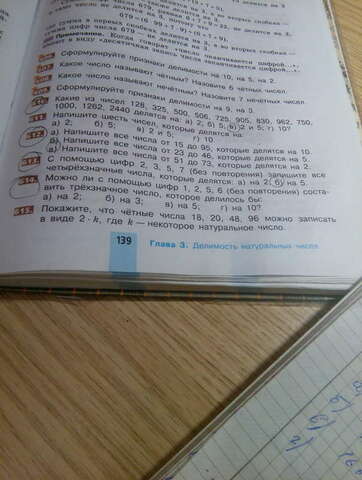 679 — не делится на 3.
Примечание. Когда говорят
Сформулируйте признаки делимости на 10, на 5, на 2.
Какое число называют чётным? Назовите 6 чётных чисел.
Какое число называют нечётным? Назовите 7 нечётных чисел.
Сформулируйте признаки делимости на 9, на 3.
Какие из чисел 128, 325, 500, 506, 725, 905, 830, 982, 750,
1000, 1262, 2440 делятся на: а) 2; б) 5; в) 2 и 5; г) 10?
Напишите шесть чисел, которые делятся на:
а) 2; б) 5; в) 2 и 5; г) 10.
а) Напишите все числа от 15 до 95, которые делятся на 10.
б) Напишите все числа от 23 до 46, которые делятся на 5.
в) Напишите все числа от 51 до 73, которые делятся на 2.
С помощью цифр 2, 3, 5, 7 (без повторения) запишите все
четырёхзначные числа, которые делятся: а) на 2; б) на 5.
Можно ли с помощью цифр 1, 2, 5, 6 (без повторения) соста-
вить трёхзначное число, которое делилось бы:
а) на 2; б) на 3; в) на 5; г) на 10?
Покажите, что чётные числа 18, 20, 48, 96 можно записать
в виде 2 · k, где k — некоторое натуральное число.
139 Глава 3. Делимость натуральных чисел